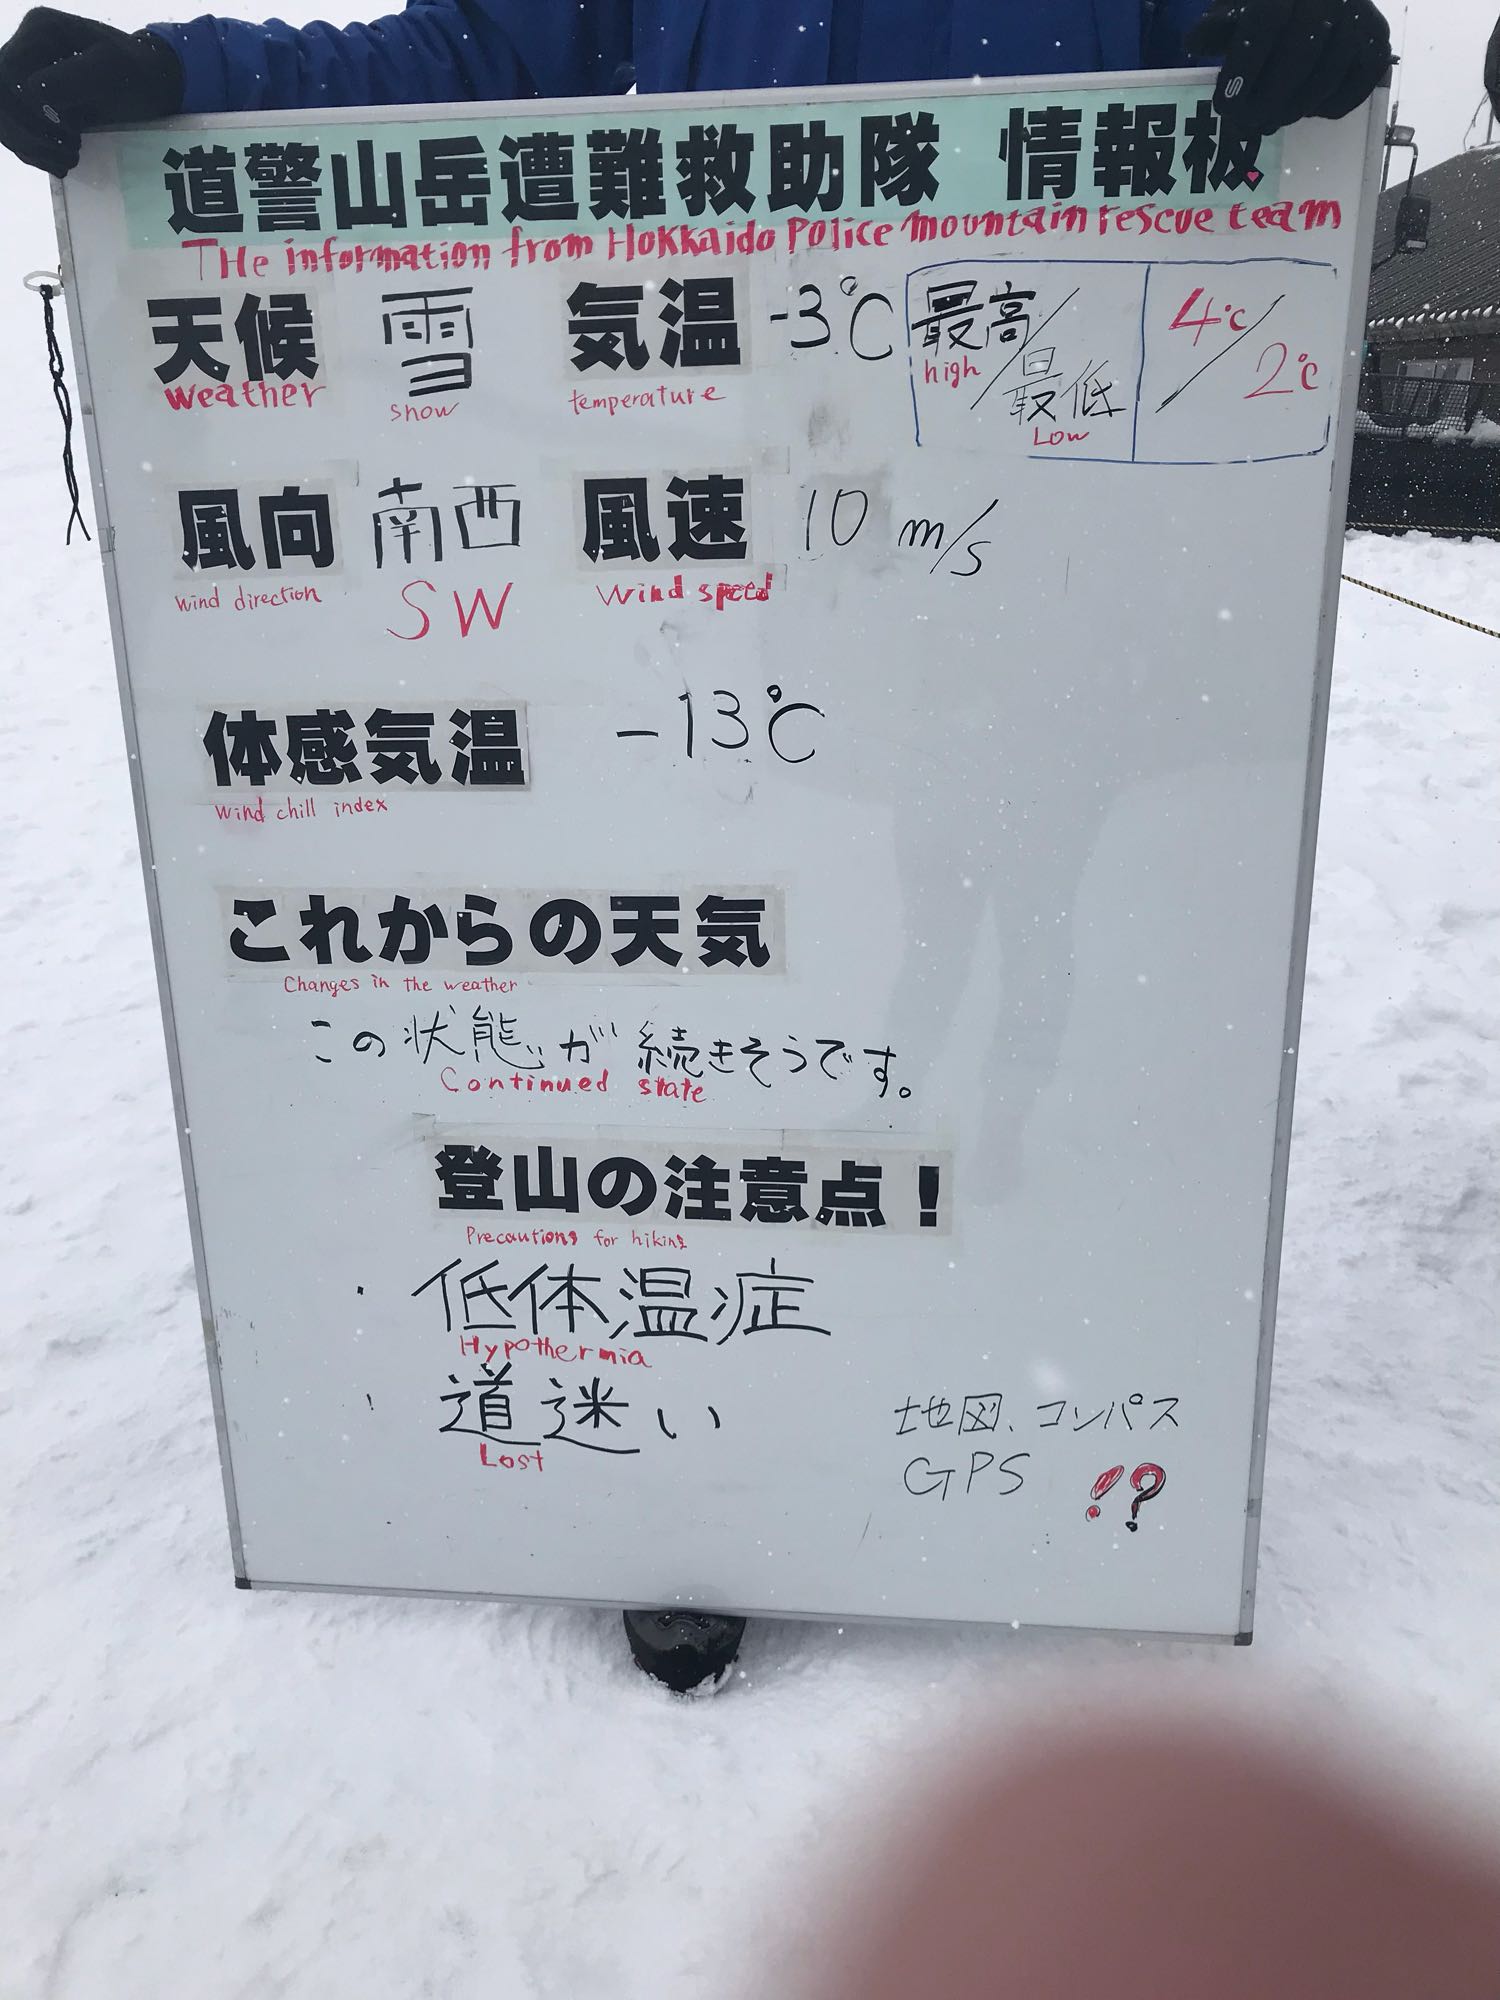 道警山岳遭難救助隊 情報板
THe information from Hokkaido Police mountain rescue team
天候 雪 気温 -3℃ 最高/最低 4℃/2℃
weather snow temperature high Low
風向 南西 風速 10 m/s
wind direction SW Wind speed
体感気温 -13℃
wind chill index
これからの天気
Changes in the weather
この状態が続きそうです。
Continued state
登山の注意点！
Precautions for hiking
・低体温症
Hypothermia
・道迷い 地図、コンパス
Lost GPS !?